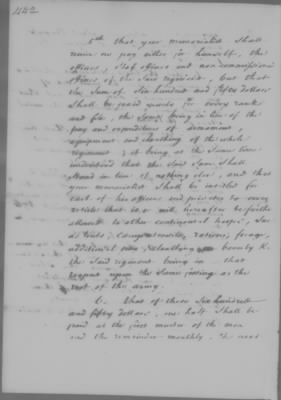 442
5th that your memorialist shall
receive no pay either to himself, the
officers, Staf officers and non commissioned
officers of the said regiment, but that
the Sum of Six hundred and fifty dollars
Shall be paid yearly for every rank
and file, the same being in lieu of the
pay and expenditures of armament,
equipment and cloathing of the whole
regiment; it being at the same time
understood that the said Sum shall
stand in lieu of nothing else, and that
your memorialist shall be intitled for
each of his officers and privates to every
article that is or may hereafter be
allowed to other continental troops, such
as tents, camp rations, forage,
additional cloathing bounty &c
the said regiment being in that
respect upon the same footing as the
rest of the army.
6. that of these Six hundred
and fifty dollars, one half Shall be
paid at the first muster of the men
and the remainder monthly,